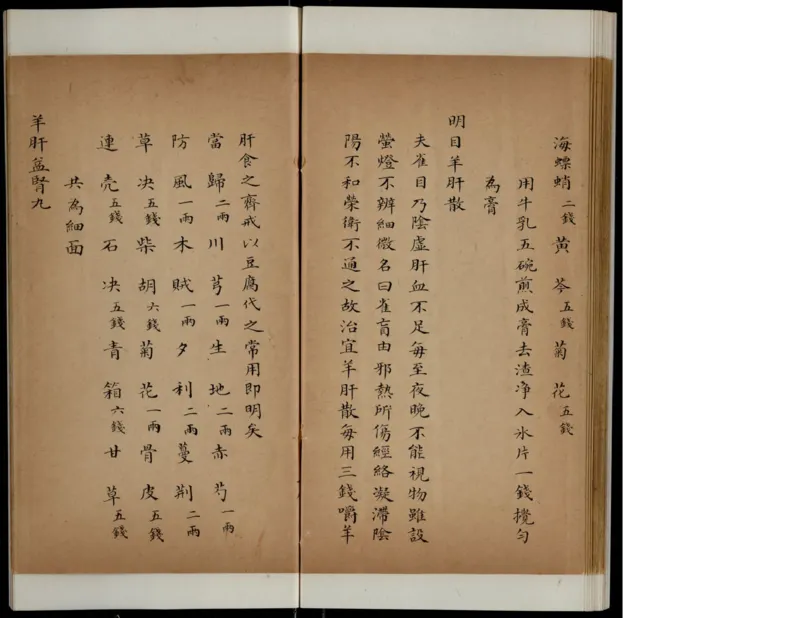 海螵蛸二錢黄芩五錢菊花五錢
用牛乳五碗煎成膏去渣净入氷片一錢攪匀
為膏
明目羊肝散
夫雀目乃陰虛肝血不足每至夜晚不能視物雖設
螢燈不辨細微名曰雀肓由邪熱所傷經絡凝滯陰
陽不和榮衛不通之故治宜羊肝散每用三錢嚼羊
肝食之齋戒以豆腐代之常用即明矣
當歸二兩川芎一兩生地二兩赤芍一兩
防風一兩木賊一兩夕利二兩蔓荆二兩
草决五錢柴胡六錢菊花一兩骨皮五錢
連壳五錢石决五錢青箱六錢甘草五錢
共為細面
羊肝益腎九